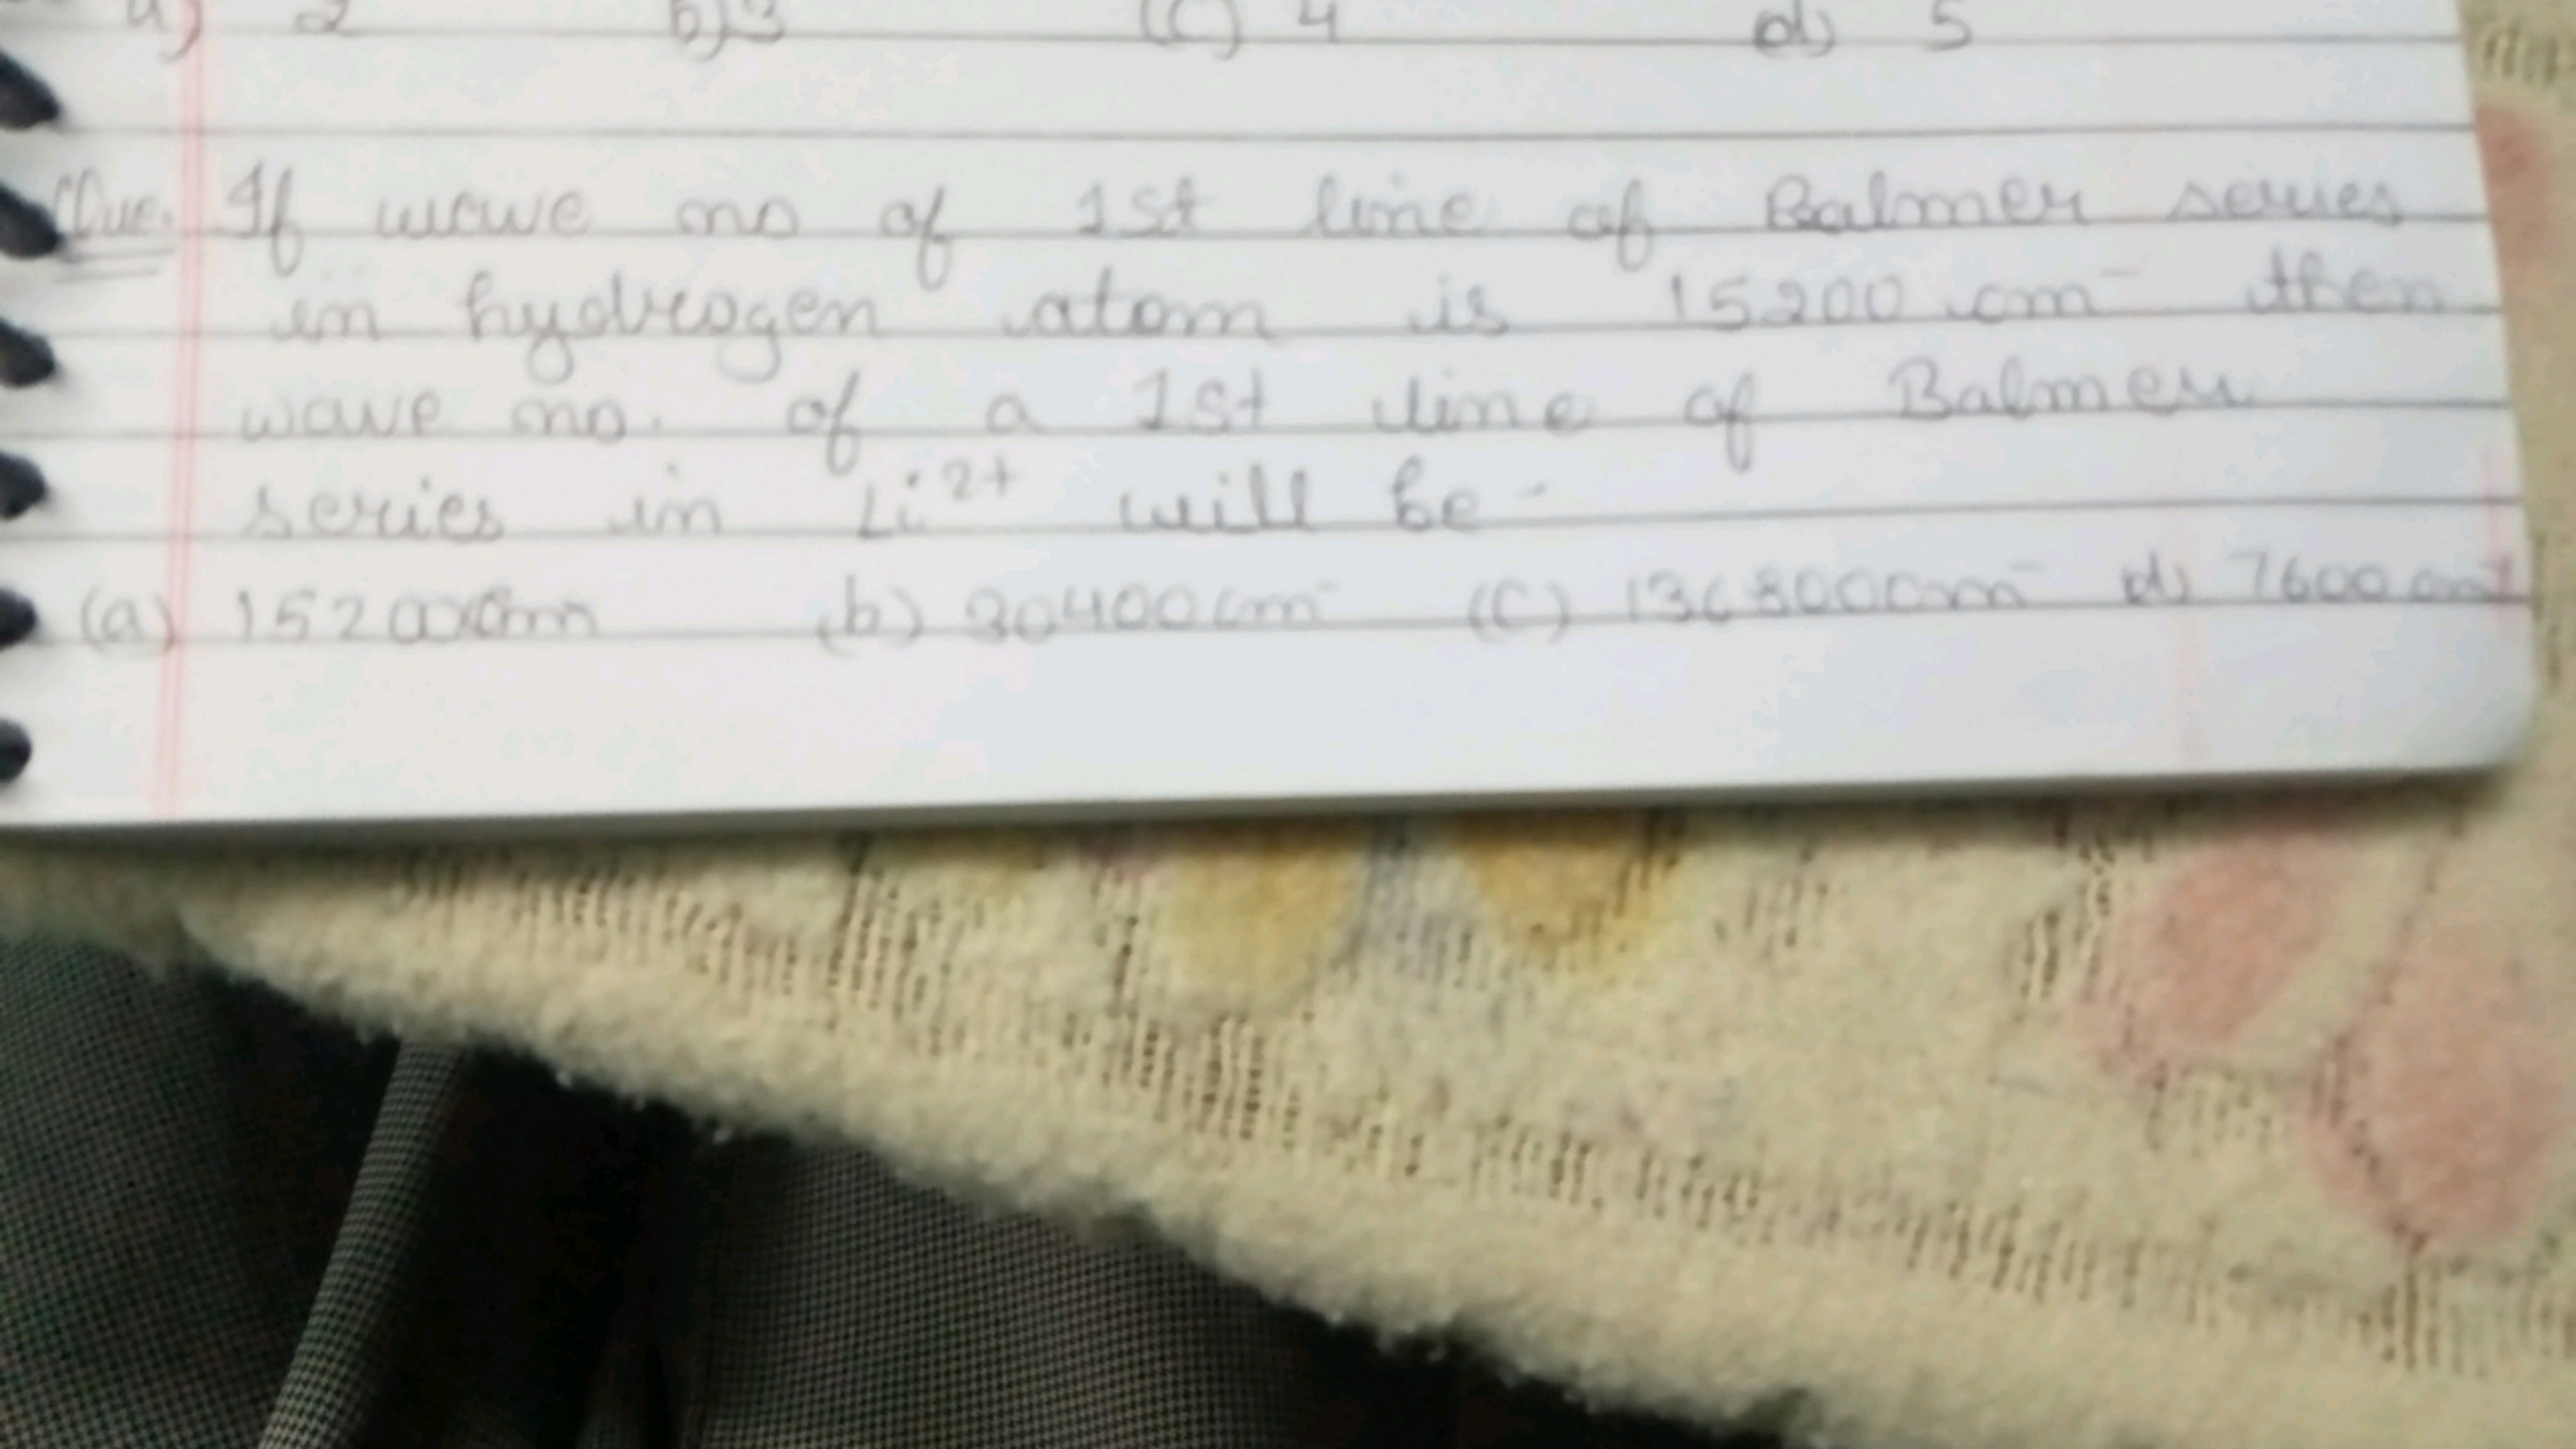 a) 2 b) 3 (C) 4 d) 5
Que. If wave no of 1st line of Balmer series
in hydrogen atom is 15200 cm⁻ then
wave no. of a 1st line of Balmer
series in Li²⁺ will be -
(a) 15200cm (b) 30400cm⁻ (C) 136800cm⁻ d) 7600 cm⁻¹